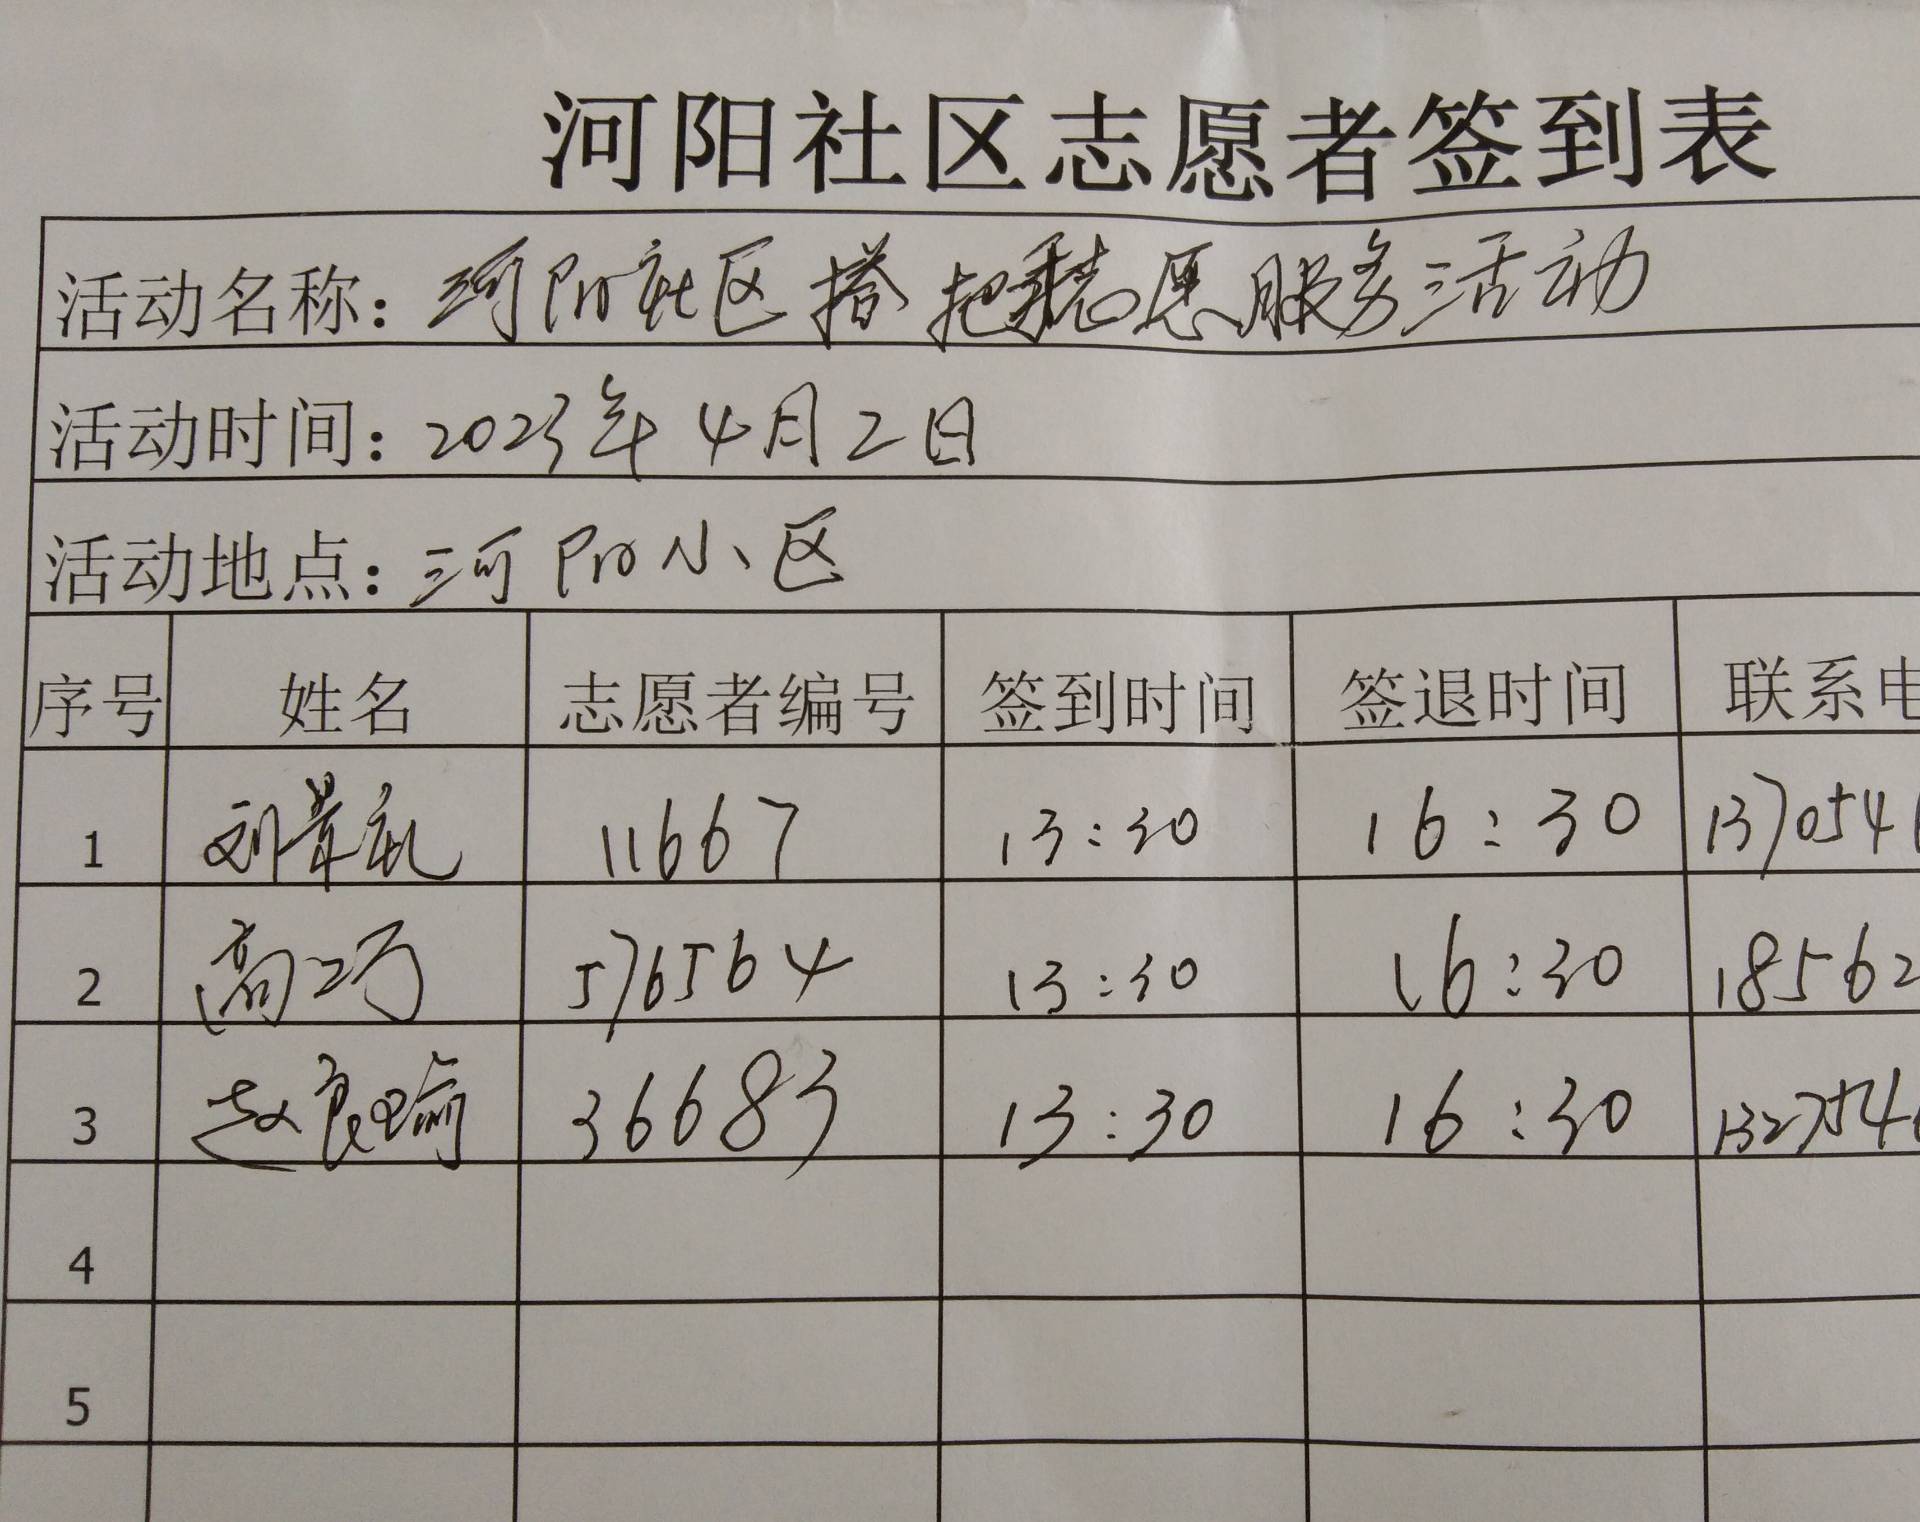 河阳社区志愿者签到表
活动名称：河阳社区搭把手志愿服务活动
活动时间：2023年4月2日
活动地点：河阳小区
序号 姓名 志愿者编号 签到时间 签退时间 联系电
1 刘 11667 13:30 16:30 137054
2 高巧 576564 13:30 16:30 18562
3 赵良瑜 36683 13:30 16:30 132754
4
5